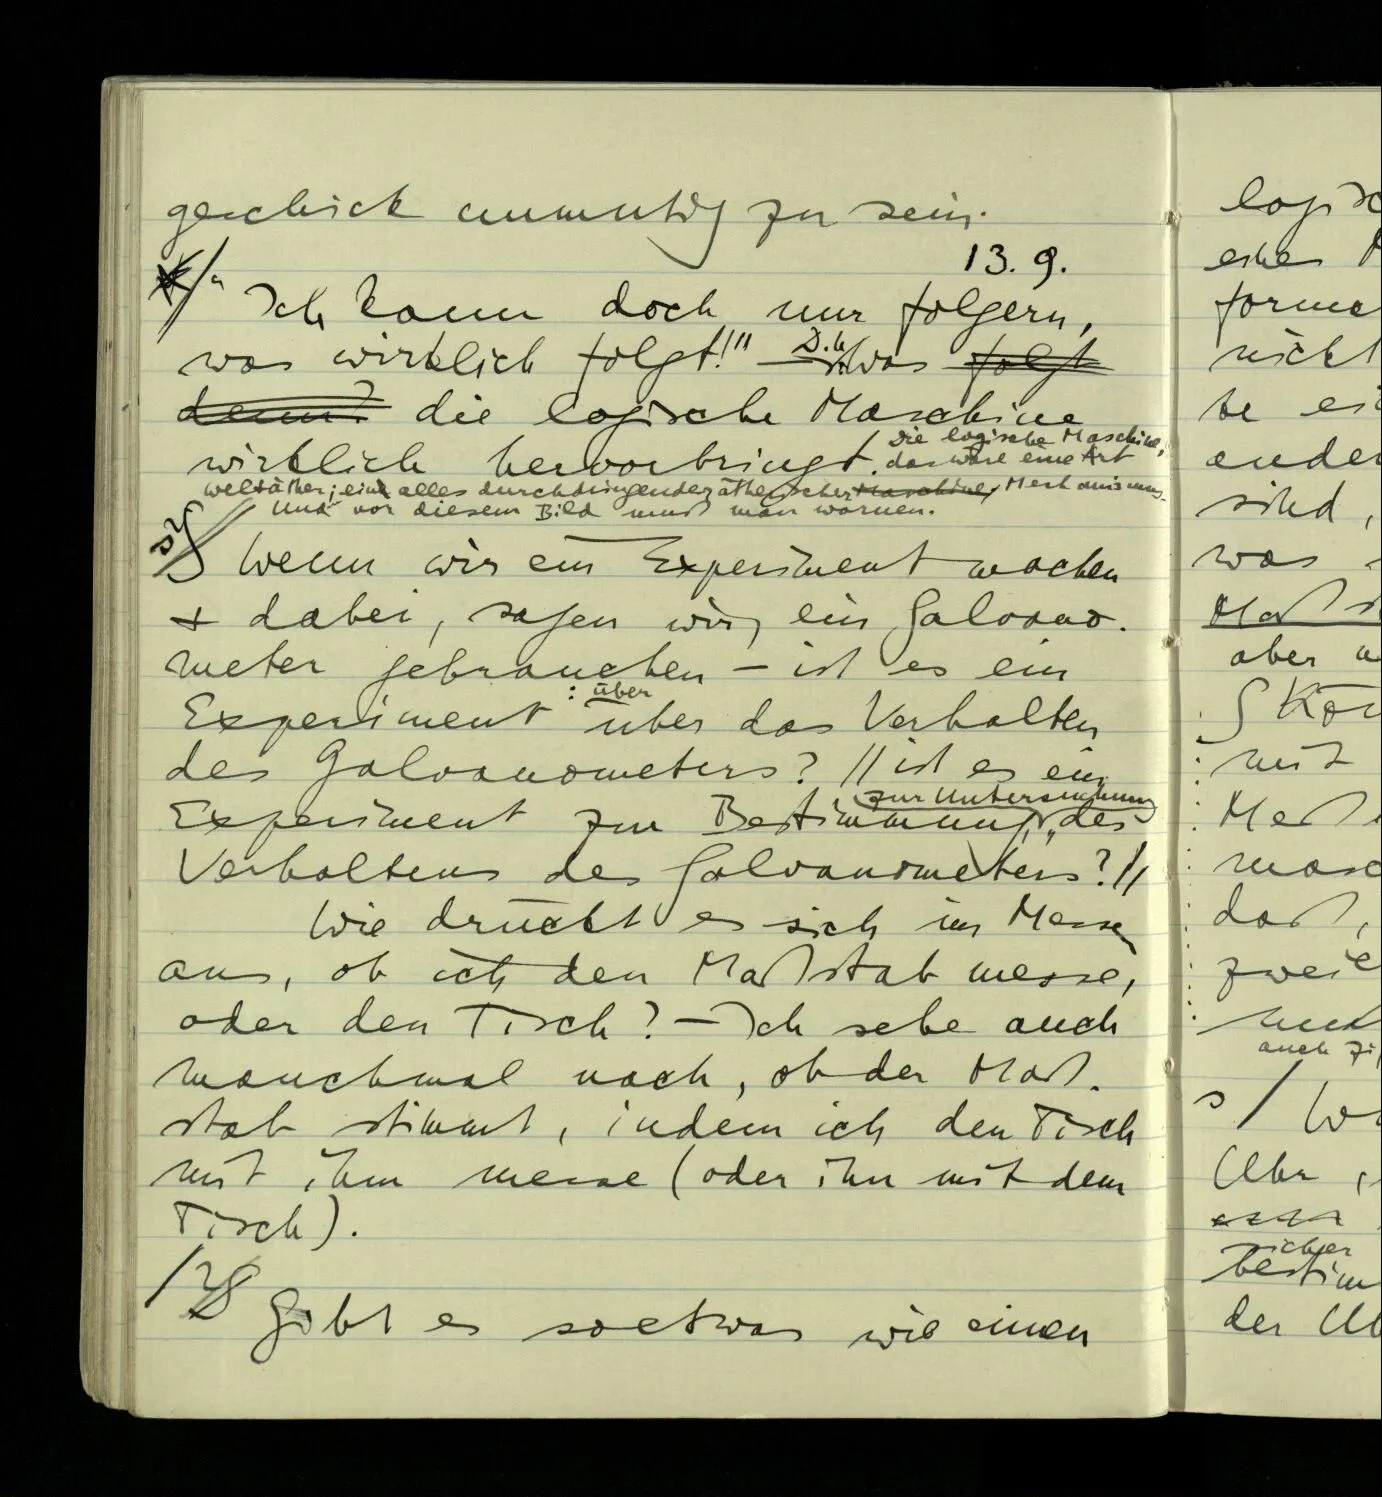 geschick anmutig zu sein.
13. 9.
"Ich kann doch nur folgern,
was wirklich folgt!" – D.h.: was folgt
denn? die logische Maschine
wirklich hervorbringt. Die logische Maschine,
das wäre eine Art
Weltäther; ein alles durchdringender ätherischer Maschine, Mechanismus.
Und vor diesem Bild muß man warnen.
Wenn wir ein Experiment machen
& dabei, sagen wir, ein Galvano-
meter gebrauchen – ist es ein
: über
Experiment über das Verhalten
des Galvanometers? // ist es ein
zur Untersuchung
Experiment zur Bestimmung des
Verhaltens des Galvanometers? //
Wie drückt es sich im Messen
aus, ob ich den Maßstab messe,
oder den Tisch? – Ich sehe auch
manchmal nach, ob der Maß-
stab stimmt, indem ich den Tisch
mit ihm messe (oder ihn mit dem
Tisch).
Gibt es soetwas wie einen
nicht
sind,
was
aber
mit
zwei
auch
s /
Uhr
sicher
der